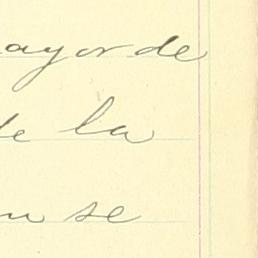 ayor de
de la
n se